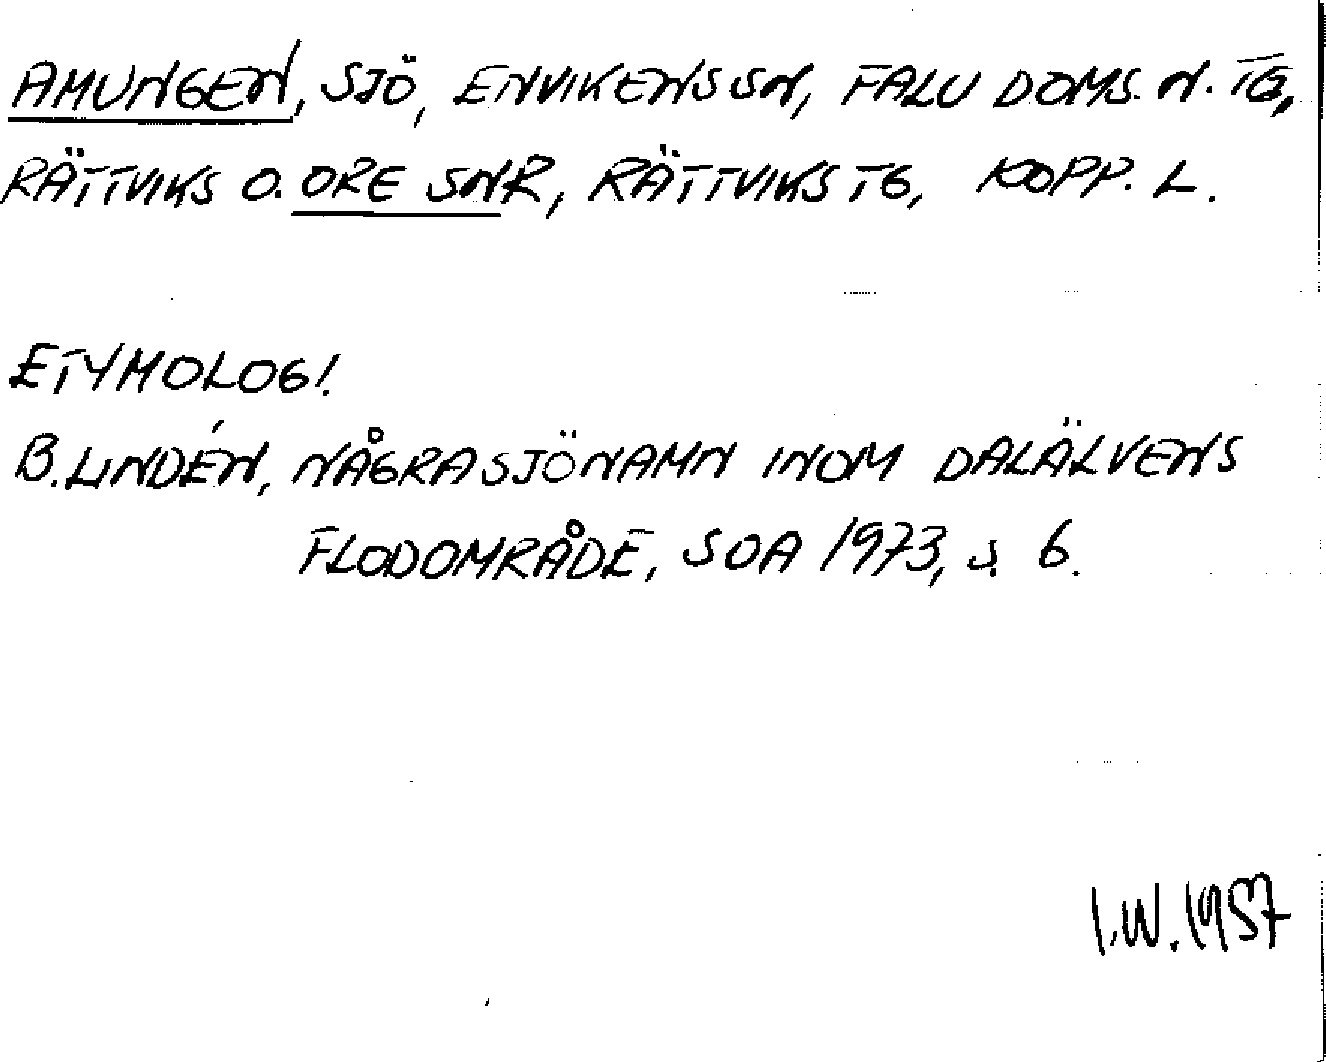 AMUNGEN, SJÖ, ENVIKENS SN, FALU DOMS. N. TG,
RÄTTVIKS O. ORE SNR, RÄTTVIKS TG, KOPP. L.
ETYMOLOGI.
B. LINDÉN, NÅGRA SJÖNAMN INOM DALÄLVENS
FLODOMRÅDE, SOA 1973, s. 6.
I.W. 1987